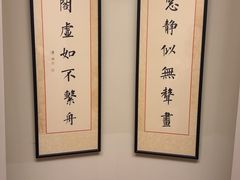 窓静似無聲畫
閣虛如不繫舟